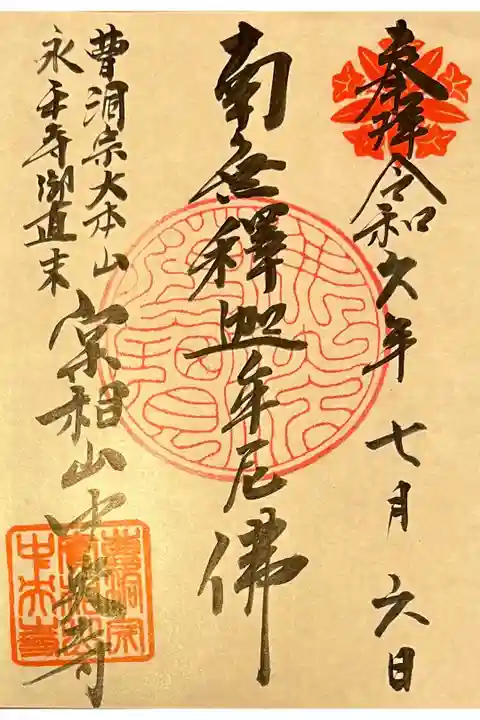 奉拜 令和六年 七月 六日
南無釋迦牟尼佛
曹洞宗大本山
永平寺御直末
宗祖山中央寺
曹洞宗
中央寺